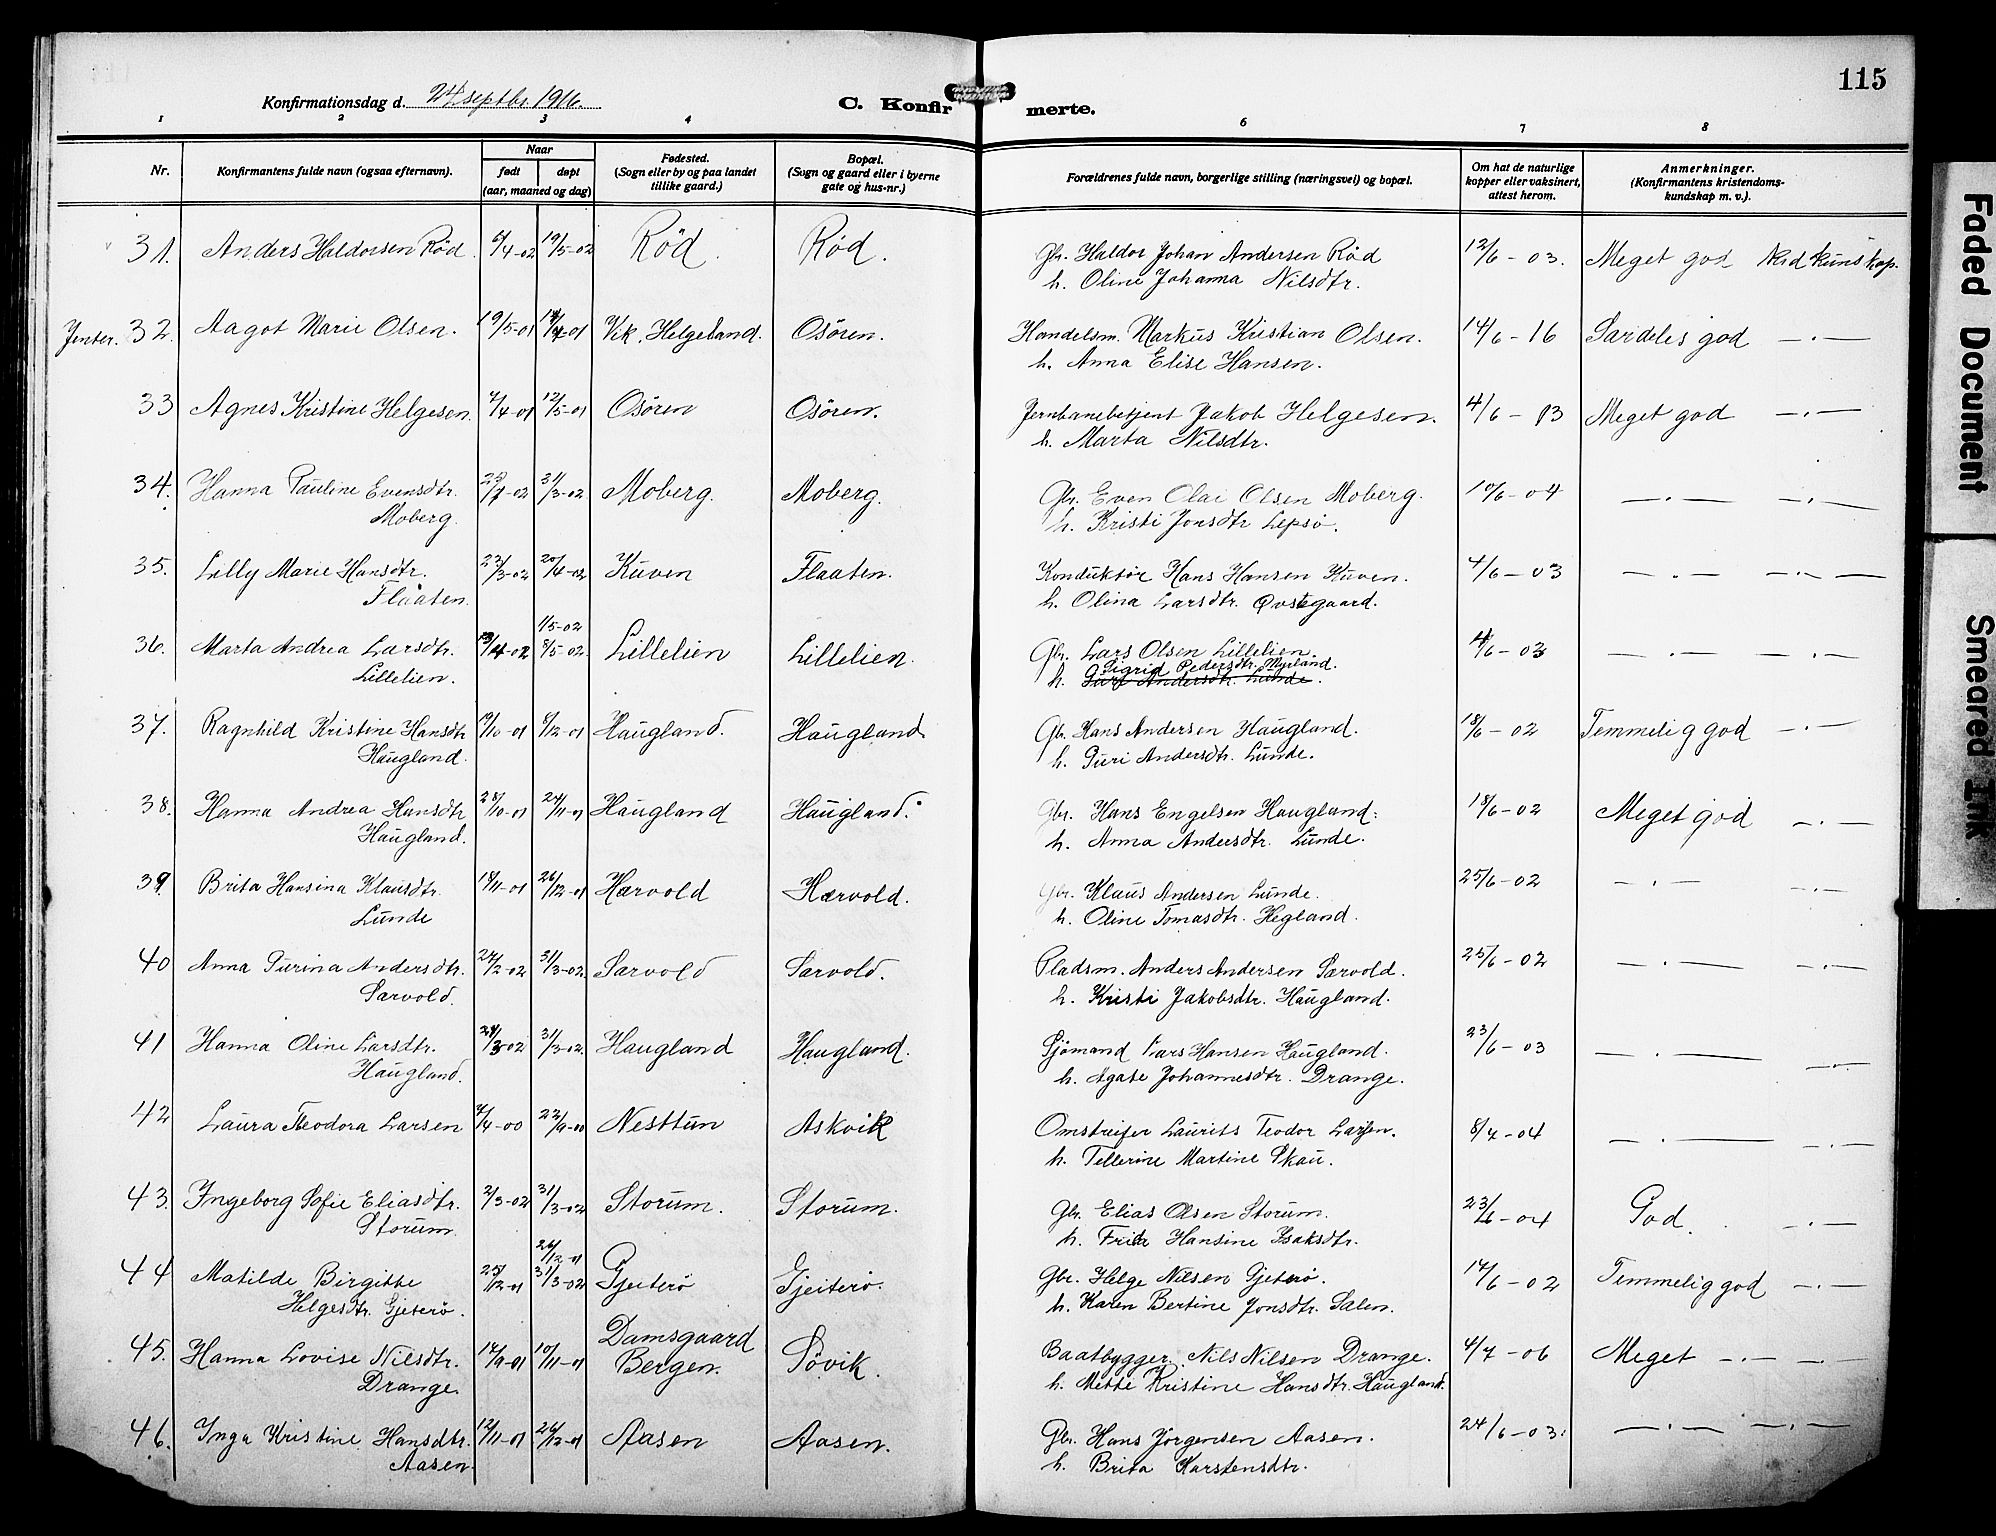 115
Konfirmationsdag d. 24 septbr. 1916.
C. Konfirmerte.
1 2 3 4 6 7 8
Nr. Konfirmantens fulde navn (ogsaa efternavn). Naar født døpt (aar, maaned og dag) Fødested. (Sogn eller by og paa landet tillike gaard.) Bopæl. (Sogn og gaard eller i byerne gate og hus-nr.) Forældrenes fulde navn, borgerlige stilling (næringsvei) og bopæl. Om hat de naturlige kopper eller vaksinert, attest herom. Anmerkninger. (Konfirmantens kristendoms-kundskap m. v.).
31. Anders Haldorsen Rød 6/4-02 19/5-02 Rød. Rød. Gbr. Haldor Johan Andersen Rød 12/6-03. Meget god
h. Oline Johanna Nilsdtr.
Jenter. 32. Aagot Marie Olsen. 19/5-01 Vik, Helgeland. Osören. Handelsm. Markus Kristian Olsen. 14/6-16 Særdeles god —.—
h. Anna Elise Hansen.
33 Agnes Kristine Helgesen 7/4-01 12/5-01 Osören Osören. Jernbanebetjent Jakob Helgesen. 4/6-03 Meget god —.—
h. Marta Nilsdtr.
34. Hanna Pauline Evensdtr. 31/3-02 Moberg. Moberg. Gbr. Even Olai Olsen Moberg. 10/6-04 —.— —.—
Moberg. h. Kristi Jonsdtr Lepsö.
35. Lilly Marie Hansdtr. 23/3-02 20/4-02 Kuven Flaaten. Konduktör Hans Hansen Kuven. 4/6-03 —.— —.—
Flaaten. h. Olina Larsdtr. Øvstegaard.
1/5-02
36. Marta Andrea Larsdtr. 13/4-02 8/5-02 Lillelien Lillelien. Gbr. Lars Olsen Lillelien. 4/6-03 —.— —.—
Lillelien. h. Sigrid Pedersdtr. Myrland.
Guri Andersdtr. Lunde.
37. Ragnhild Kristine Hansdtr 19/10-01 8/12-01 Haugland. Haugland. Gb. Hans Andersen Haugland. 18/6-02 Temmelig god —.—
Haugland. h. Guri Andersdtr. Lunde.
38. Hanna Andrea Hansdtr 28/10-01 24/11-01 Haugland Haugland. Gbr. Hans Engelsen Haugland. 18/6-02 Meget god —.—
Haugland. h. Anna Andersdtr. Lunde.
39 Brita Hansina Klausdtr. 18/11-01 26/12-01 Hærvold Hærvold. Gbr. Klaus Andersen Lunde. 25/6-02 —.— —.—
Lunde h. Oline Tomasdtr. Hegland.
40 Anna Gurina Andersdtr. 27/2-02 31/3-02 Særvold Særvold. Pladsm. Anders Andersen Særvold. 25/6-02 —.— —.—
Særvold. h. Kristi Jakobsdtr. Haugland.
41 Hanna Oline Larsdtr. 31/3-02 Haugland Haugland. Sjömand Lars Hansen Haugland. 23/6-03 —.— —.—
Haugland. h. Agate Johannesdtr. Drange.
42 Laura Teodora Larsen 7/4-00 22/9-00 Nesttun Askvik Omstreifer Laurits Teodor Larsen. 8/7-04 —.— —.—
h. Tellerine Martine Skau.
43. Ingeborg Sofie Eliasdtr. 2/3-02 31/3-02 Storum. Storum. Gbr. Elias Olsen Storum. 23/6-04 God. —.—
Storum h. Hansine Isaksdtr.
26/12-01
44 Matilde Birgitte 25/12-01 31/3-02 Gjeiterö Gjeiterö. Gbr. Helge Nilsen Gjeterö. 14/6-02 Temmelig god —.—
Helgesdtr. Gjeterö. h. Karen Bertine Jonsdtr. Salen.
45. Hanna Lovise Nilsdtr. 17/9-01 10/11-01 Damsgaard Bergen. Sövik. Baatbygger. Nils Nilsen Drange. 4/7-06 Meget —.— —.—
Drange. h. Mette Kristine Hansdtr. Haugland.
46. Inga Kristine Hansdtr. 12/11-01 26/12-01 Aasen Aasen. Gbr. Hans Jörgensen Aasen. 24/6-03. —.— —.—
Aasen. h. Brita Karstensdtr.
Faded Document
Smeared Ink